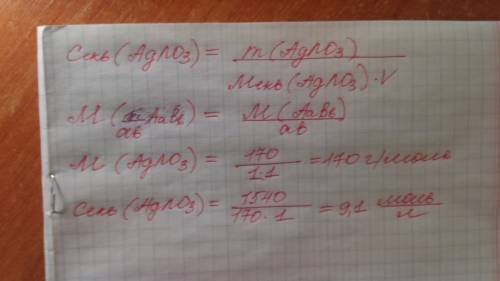 Сэкв (AgNO3) = m (AgNO3) / Мэкв (AgNO3) · V
М (1/ab AaBb) = М (AaBb) / ab
М (AgNO3) = 170 / 1·1 = 170 г/моль
Сэкв (AgNO3) = 1540 / 170·1 = 9,1 моль/л